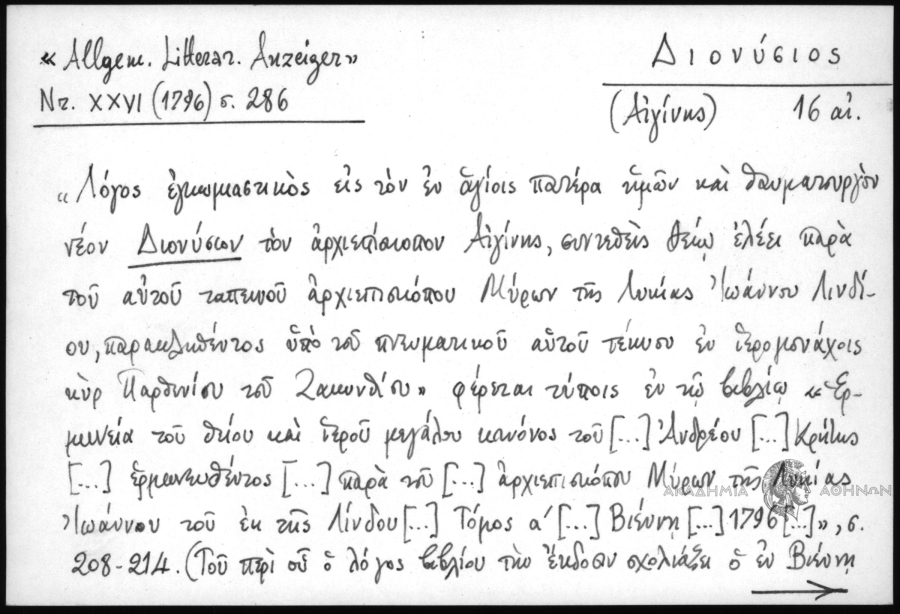 «Allgem. Litterar. Anzeiger»
Nr. XXVI (1796) σ. 286
Διονύσιος
(Αἰγίνης) 16 αἰ.
“Λόγος ἐγκωμιαστικὸς εἰς τὸν ἐν ἁγίοις πατέρα ἡμῶν καὶ θαυματουργὸν
νέον Διονύσιον τὸν ἀρχιεπίσκοπον Αἰγίνης, συντεθεὶς θείῳ ἐλέει παρὰ
τοῦ αὐτοῦ ταπεινοῦ ἀρχιεπισκόπου Μύρων τῆς Λυκίας Ἰωάννου Λινδί-
ου, παρακληθέντος ὑπὸ τοῦ πνευματικοῦ αὐτοῦ τέκνου ἐν ἱερομονάχοις
κὺρ Παρθενίου τοῦ Ζακυνθίου» φέρεται τύποις ἐν τῷ βιβλίῳ «Ἑρ-
μηνεία τοῦ θείου καὶ ἱεροῦ μεγάλου κανόνος τοῦ [...] Ἀνδρέου [...] Κρήτης
[...] ἑρμηνευθέντος [...] παρὰ τοῦ [...] ἀρχιεπισκόπου Μύρων τῆς Λυκίας
Ἰωάννου τοῦ ἐκ τῆς Λίνδου [...] Τόμος α' [...] Βιέννη [...] 1796 [...]», σ.
208-214. (Τοῦ περὶ οὗ ὁ λόγος βιβλίου τὴν ἔκδοσιν σχολιάζει ὁ ἐν Βιέννη
ΑΚΑΔΗΜΙΑ ΑΘΗΝΩΝ